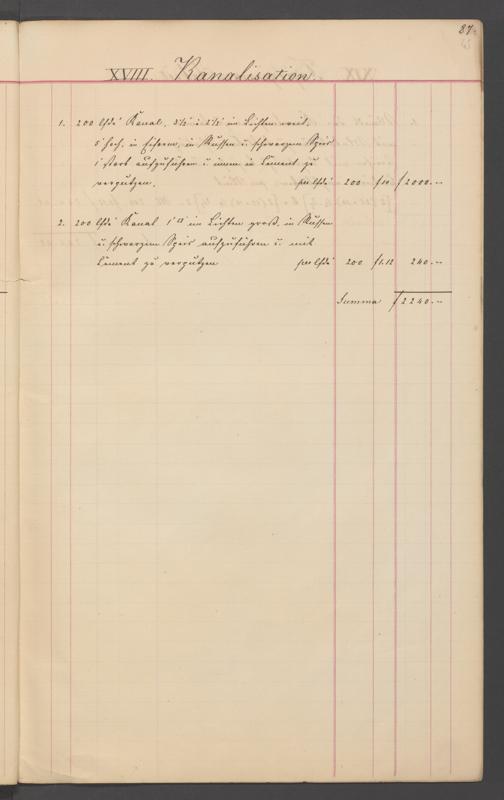 87.
XVIII. Kanalisation.
1. 200 lfds' Kanal, 3½' : 2½' im Lichten weit,
5' hoch, in Eiform, in Russen u. schwarzem Speis
1' stark aufzuführen u. innen in Cement zu
verputzen. pro lfds' 200 f 10 f 2000.--
2. 200 lfds' Kanal 1' im Lichten groß, in Russen
u. schwarzem Speis aufzuführen u. mit
Cement zu verputzen pro lfds' 200 f 1.12 240.--
Summa f 2240.--